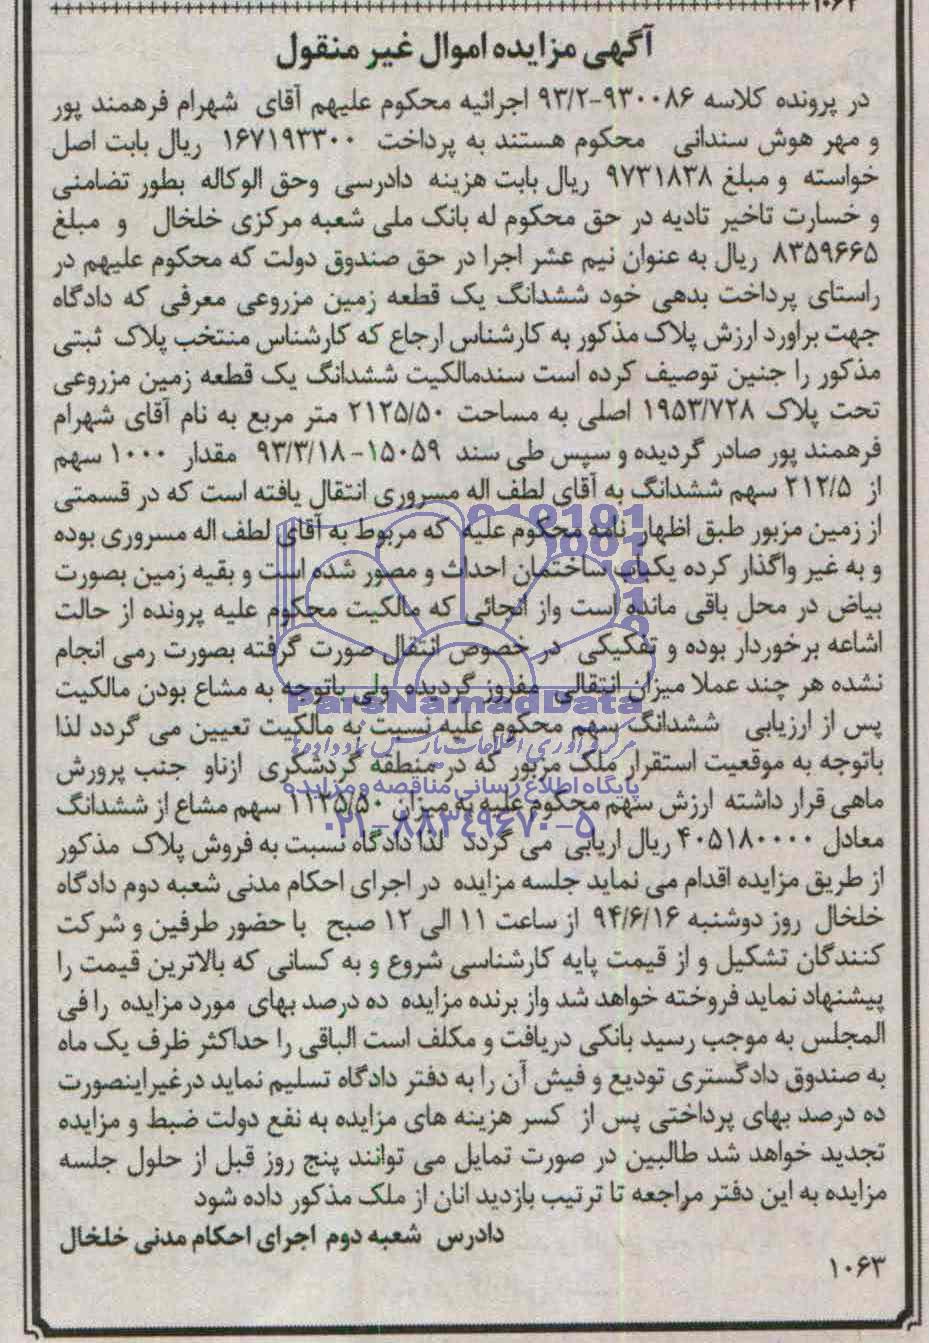 ۱۰۶۲
آگهی مزایده اموال غیر منقول
در پرونده کلاسه ۹۳۰۰۸۶-۹۳/۲ اجرائیه محکوم علیهم آقای شهرام فرهمند پور
و مهر هوش سندانی محکوم هستند به پرداخت ۱۶۷۱۹۳۳۰۰ ریال بابت اصل
خواسته و مبلغ ۹۷۳۱۸۳۸ ریال بابت هزینه دادرسی وحق الوکاله بطور تضامنی
و خسارت تاخیر تادیه در حق محکوم له بانک ملی شعبه مرکزی خلخال و مبلغ
۸۳۵۹۶۶۵ ریال به عنوان نیم عشر اجرا در حق صندوق دولت که محکوم علیهم در
راستای پرداخت بدهی خود ششدانگ یک قطعه زمین مزروعی معرفی که دادگاه
جهت براورد ارزش پلاک مذکور به کارشناس ارجاع که کارشناس منتخب پلاک ثبتی
مذکور را جنین توصیف کرده است سندمالکیت ششدانگ یک قطعه زمین مزروعی
تحت پلاک ۱۹۵۳/۷۲۸ اصلی به مساحت ۲۱۲۵/۵۰ متر مربع به نام آقای شهرام
فرهمند پور صادر گردیده و سپس طی سند ۱۵۰۵۹-۹۳/۳/۱۸ مقدار ۱۰۰۰ سهم
از ۲۱۲/۵ سهم ششدانگ به آقای لطف اله مسروری انتقال یافته است که در قسمتی
از زمین مزبور طبق اظهار نامه محکوم علیه که مربوط به آقای لطف اله مسروری بوده
و به غیر واگذار کرده یکباب ساختمان احداث و مصور شده است و بقیه زمین بصورت
بیاض در محل باقی مانده است واز آنجائی که مالکیت محکوم علیه پرونده از حالت
اشاعه برخوردار بوده و تفکیکی در خصوص انتقال صورت گرفته بصورت رمی انجام
نشده هر چند عملا میزان انتقالی مفروز گردیده ولی باتوجه به مشاع بودن مالکیت
پس از ارزیابی ششدانگ سهم محکوم علیه نسبت به مالکیت تعیین می گردد لذا
باتوجه به موقعیت استقرار ملک مزبور که در منطقه گردشگری ازناو جنب پرورش
ماهی قرار داشته ارزش سهم محکوم علیه به میزان ۱۱۲۵/۵۰ سهم مشاع از ششدانگ
معادل ۴۰۵۱۸۰۰۰۰ ریال اریابی می گردد لذا دادگاه نسبت به فروش پلاک مذکور
از طریق مزایده اقدام می نماید جلسه مزایده در اجرای احکام مدنی شعبه دوم دادگاه
خلخال روز دوشنبه ۹۴/۶/۱۶ از ساعت ۱۱ الی ۱۲ صبح با حضور طرفین و شرکت
کنندگان تشکیل و از قیمت پایه کارشناسی شروع و به کسانی که بالاترین قیمت را
پیشنهاد نماید فروخته خواهد شد واز برنده مزایده ده درصد بهای مورد مزایده را فی
المجلس به موجب رسید بانکی دریافت و مکلف است الباقی را حداکثر ظرف یک ماه
به صندوق دادگستری تودیع و فیش آن را به دفتر دادگاه تسلیم نماید درغیراینصورت
ده درصد بهای پرداختی پس از کسر هزینه های مزایده به نفع دولت ضبط و مزایده
تجدید خواهد شد طالبین در صورت تمایل می توانند پنج روز قبل از حلول جلسه
مزایده به این دفتر مراجعه تا ترتیب بازدید انان از ملک مذکور داده شود
دادرس شعبه دوم اجرای احکام مدنی خلخال
۱۰۶۳
ParsNamadData
پایگاه اطلاع رسانی مناقصه و مزایده
۰۲۱-۸۸۳۴۹۶۷۰-۵